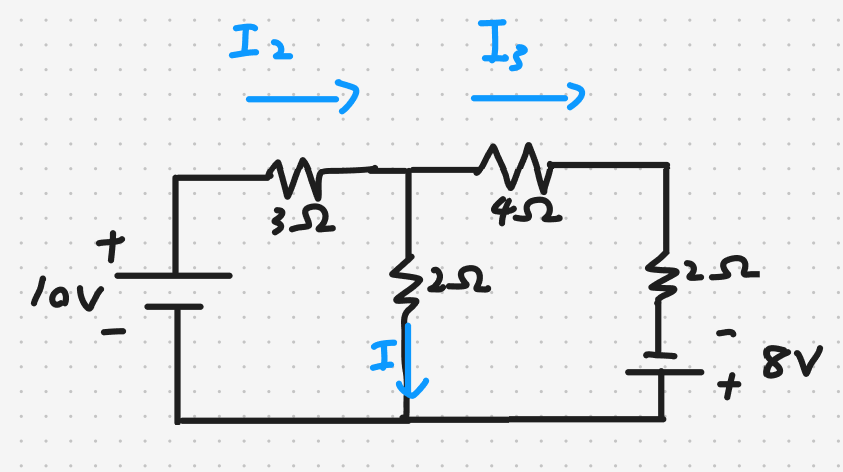 I2
I3
3Ω
4Ω
+
10V
-
2Ω
I
2Ω
-
8V
+